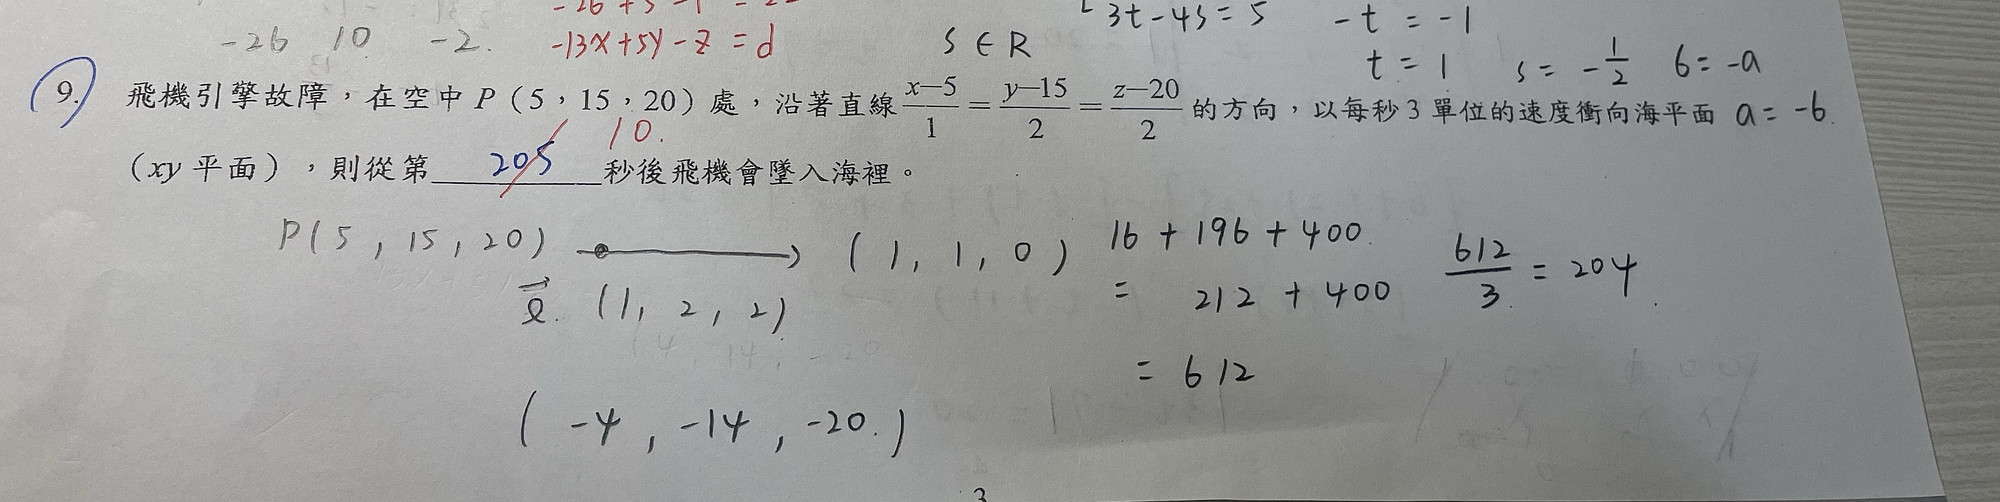 3t-4s=5 -t=-1
-26 10 -2. -13x+5y-z=d S∈R t=1 s=-\frac{1}{2} 6=-a
9. 飛機引擎故障,在空中P(5,15,20)處,沿著直線\frac{x-5}{1}=\frac{y-15}{2}=\frac{z-20}{2}的方向,以每秒3單位的速度衝向海平面 a=-6
10.
(xy平面),則從第 205 秒後飛機會墜入海裡。
P(5,15,20) → (1,1,0) 16+196+400 \frac{612}{3}=204
(1,2,2) = 212+400
= 612
(-4,-14,-20.)
3